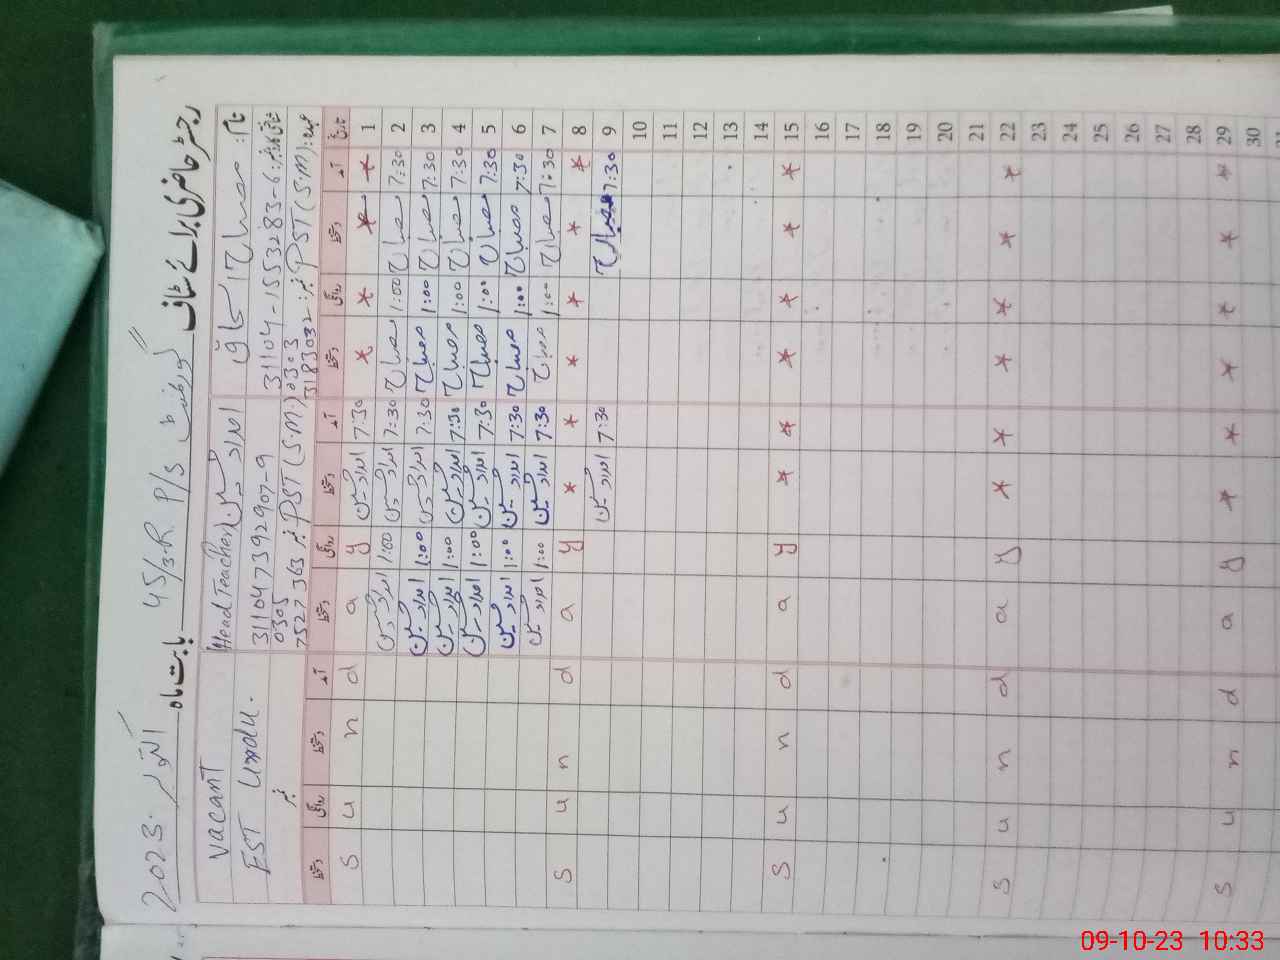 رجسٹر حاضری برائے سٹاف گورنمنٹ 45/3.R. P/S بابت ماہ اکتوبر 2023
نام:
شناختی کارڈ نمبر: 31104-1553283-6
عہدہ: PST (S.M) نمبر: 0303
3183032
Head Teacher امداد حسین
31104 7392907-9
PST (S.M.) نمبر 0305
7527363
Vacant
EST Urdu.
نمبر
تاریخ آمد دستخط روانگی دستخط آمد دستخط روانگی دستخط آمد دستخط روانگی دستخط
1 * * * * 7:30 امداد حسین y a d n u S
2 7:30 مصباح 1:00 مصباح 7:30 امداد حسین 1:00 امداد حسین
3 7:30 مصباح 1:00 مصباح 7:30 امداد حسین 1:00 امداد حسین
4 7:30 مصباح 1:00 مصباح 7:30 امداد حسین 1:00 امداد حسین
5 7:30 مصباح 1:00 مصباح 7:30 امداد حسین 1:00 امداد حسین
6 7:30 مصباح 1:00 مصباح 7:30 امداد حسین 1:00 امداد حسین
7 7:30 مصباح 1:00 مصباح 7:30 امداد حسین 1:00 امداد حسین
8 * * * * * * y a d n u S
9 7:30 مصباح 7:30 امداد حسین
10
11
12
13
14
15 * * * * * * y a d n u S
16
17
18
19
20
21
22 * * * * * * y a d n u S
23
24
25
26
27
28
29 * * * * * * y a d n u S
30
09-10-23 10:33